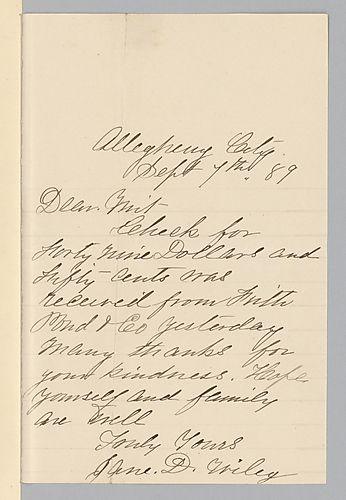 Allegheny City.
Sept 7th "89
Dear
Check for
Forty nine Dollars and
Fifty cents was
received from
& Co yesterday
Many thanks for
your kindness. Hope
yourself and family
are well
Truly Yours
Jane. D. Wiley